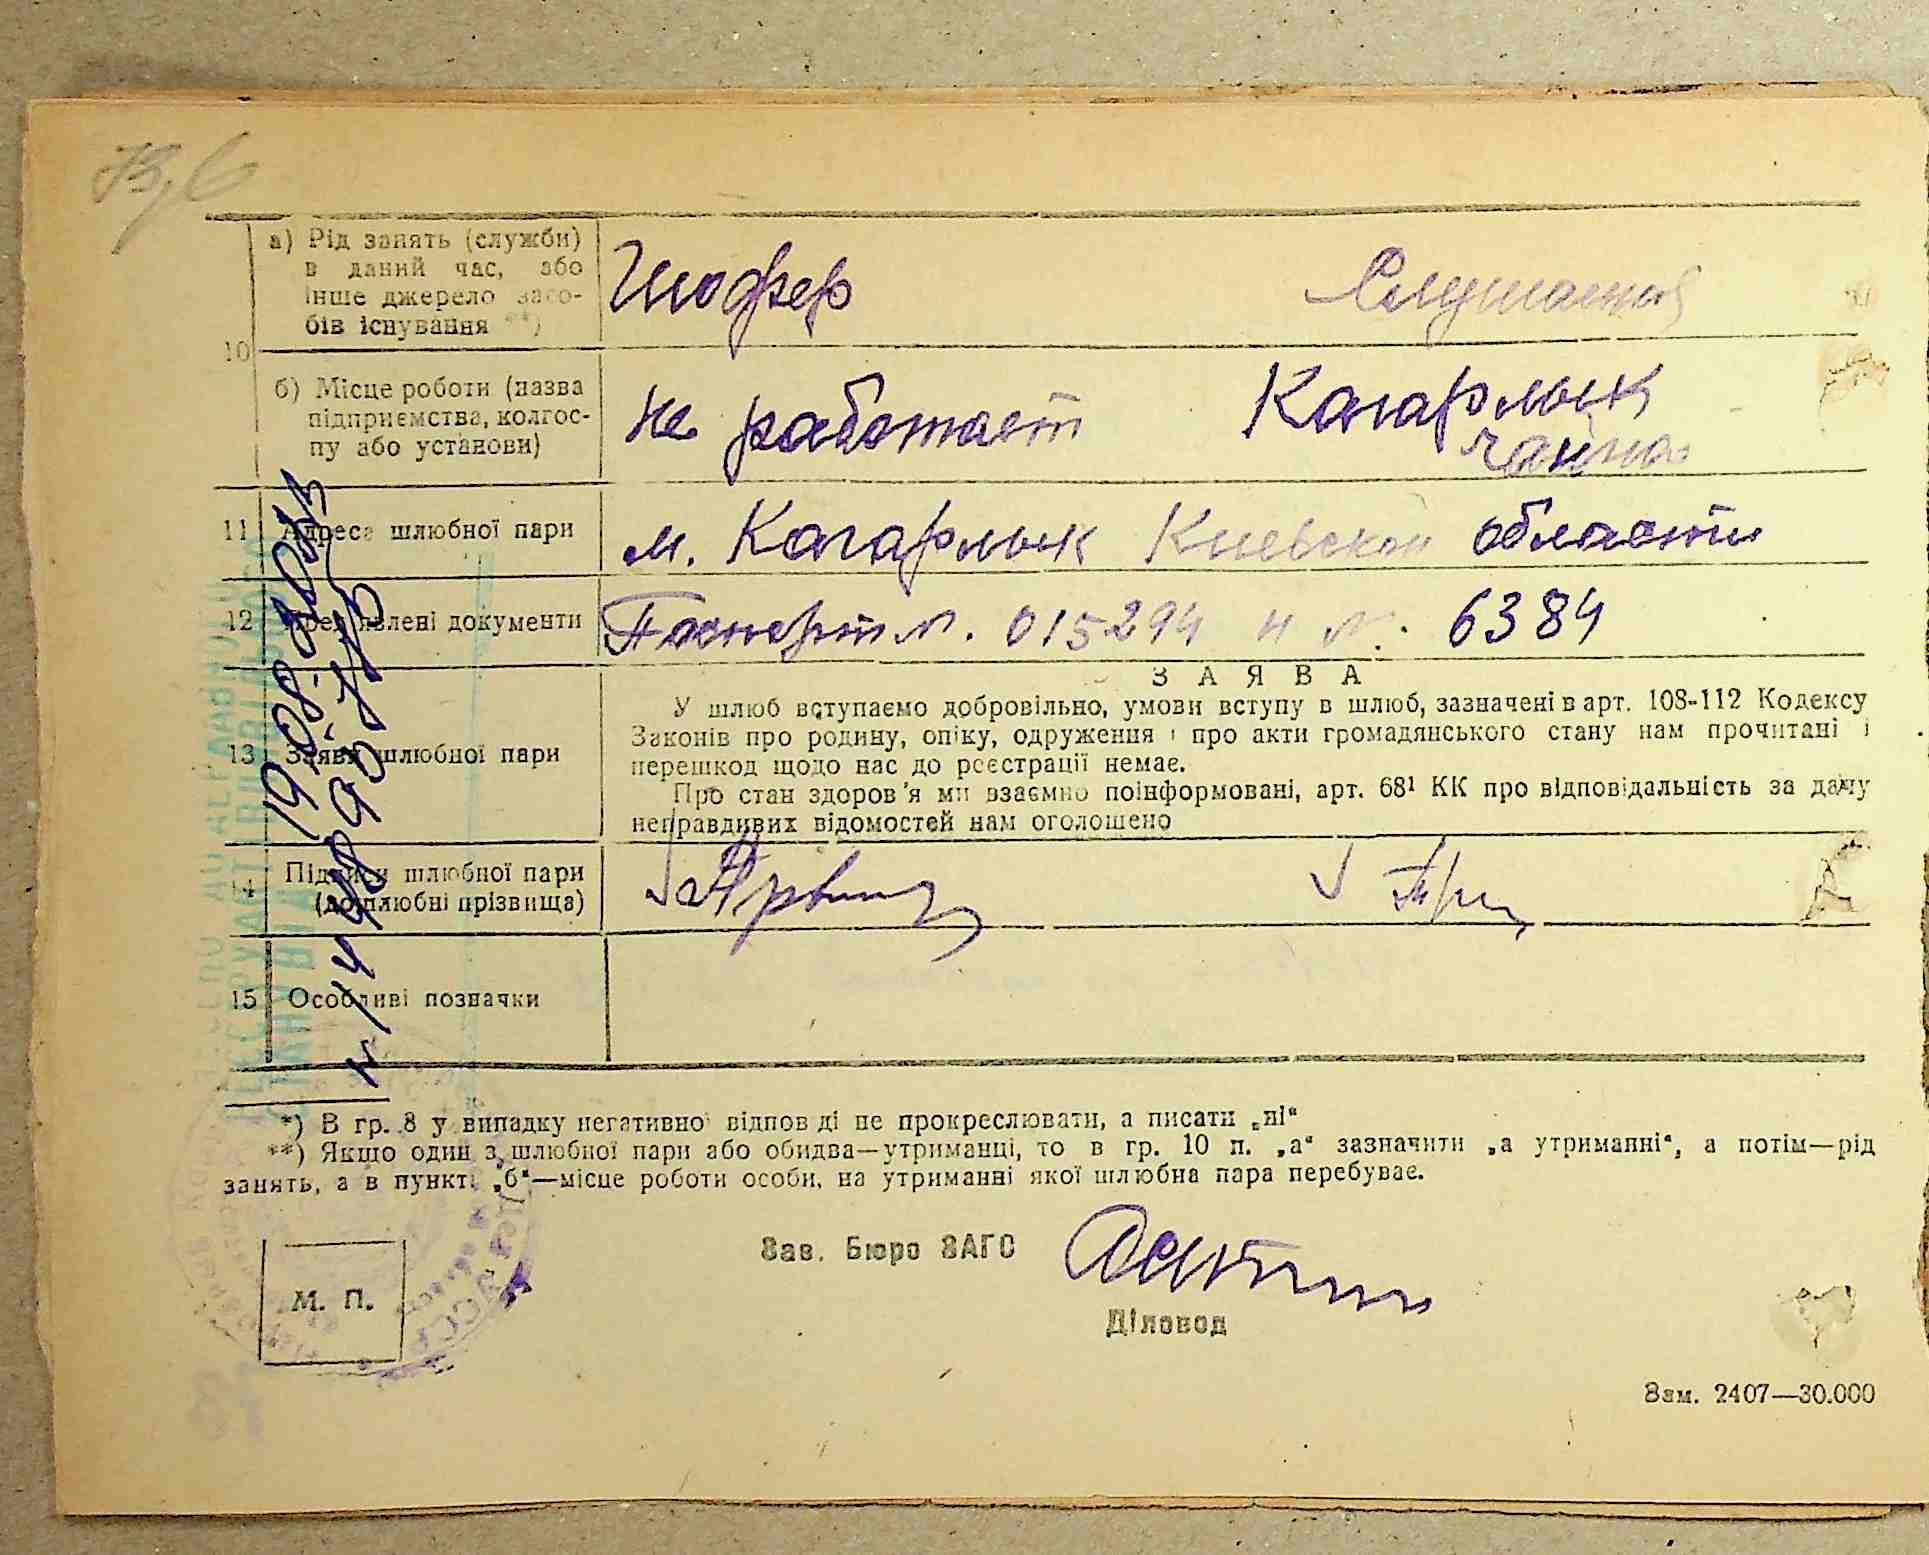 а) Рід занять (служби)
в даний час, або
інше джерело засо-
бів існування **)
Шофер
10
б) Місце роботи (назва
підприємства, колгос-
пу або установи)
не работает
Кагарлык
чайна
11 Адреса шлюбної пари
м. Кагарлык Киевской области
12 Пред'явлені документи
Паспорт №. 015294 и №. 6384
13 Заява шлюбної пари
ЗАЯВА
У шлюб вступаємо добровільно, умови вступу в шлюб, зазначені в арт. 108-112 Кодексу
Законів про родину, опіку, одруження і про акти громадянського стану нам прочитані і
перешкод щодо нас до реєстрації немає.
Про стан здоров'я ми взаємно поінформовані, арт. 68¹ КК про відповідальність за дачу
неправдивих відомостей нам оголошено
14 Підписи шлюбної пари
(дошлюбні прізвища)
15 Особливі позначки
*) В гр. 8 у випадку негативної відповіді не прокреслювати, а писати „ні“
**) Якщо один з шлюбної пари або обидва—утриманці, то в гр. 10 п. „а“ зазначити „а утриманні“, а потім—рід
занять, а в пункті „б“—місце роботи особи, на утриманні якої шлюбна пара перебуває.
Зав. Бюро ЗАГС
М. П.
Діловод
Зам. 2407—30.000